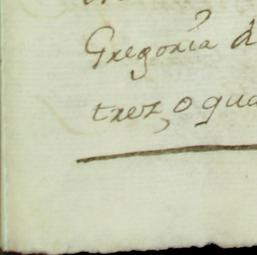 Gregoria d
trez, o qua